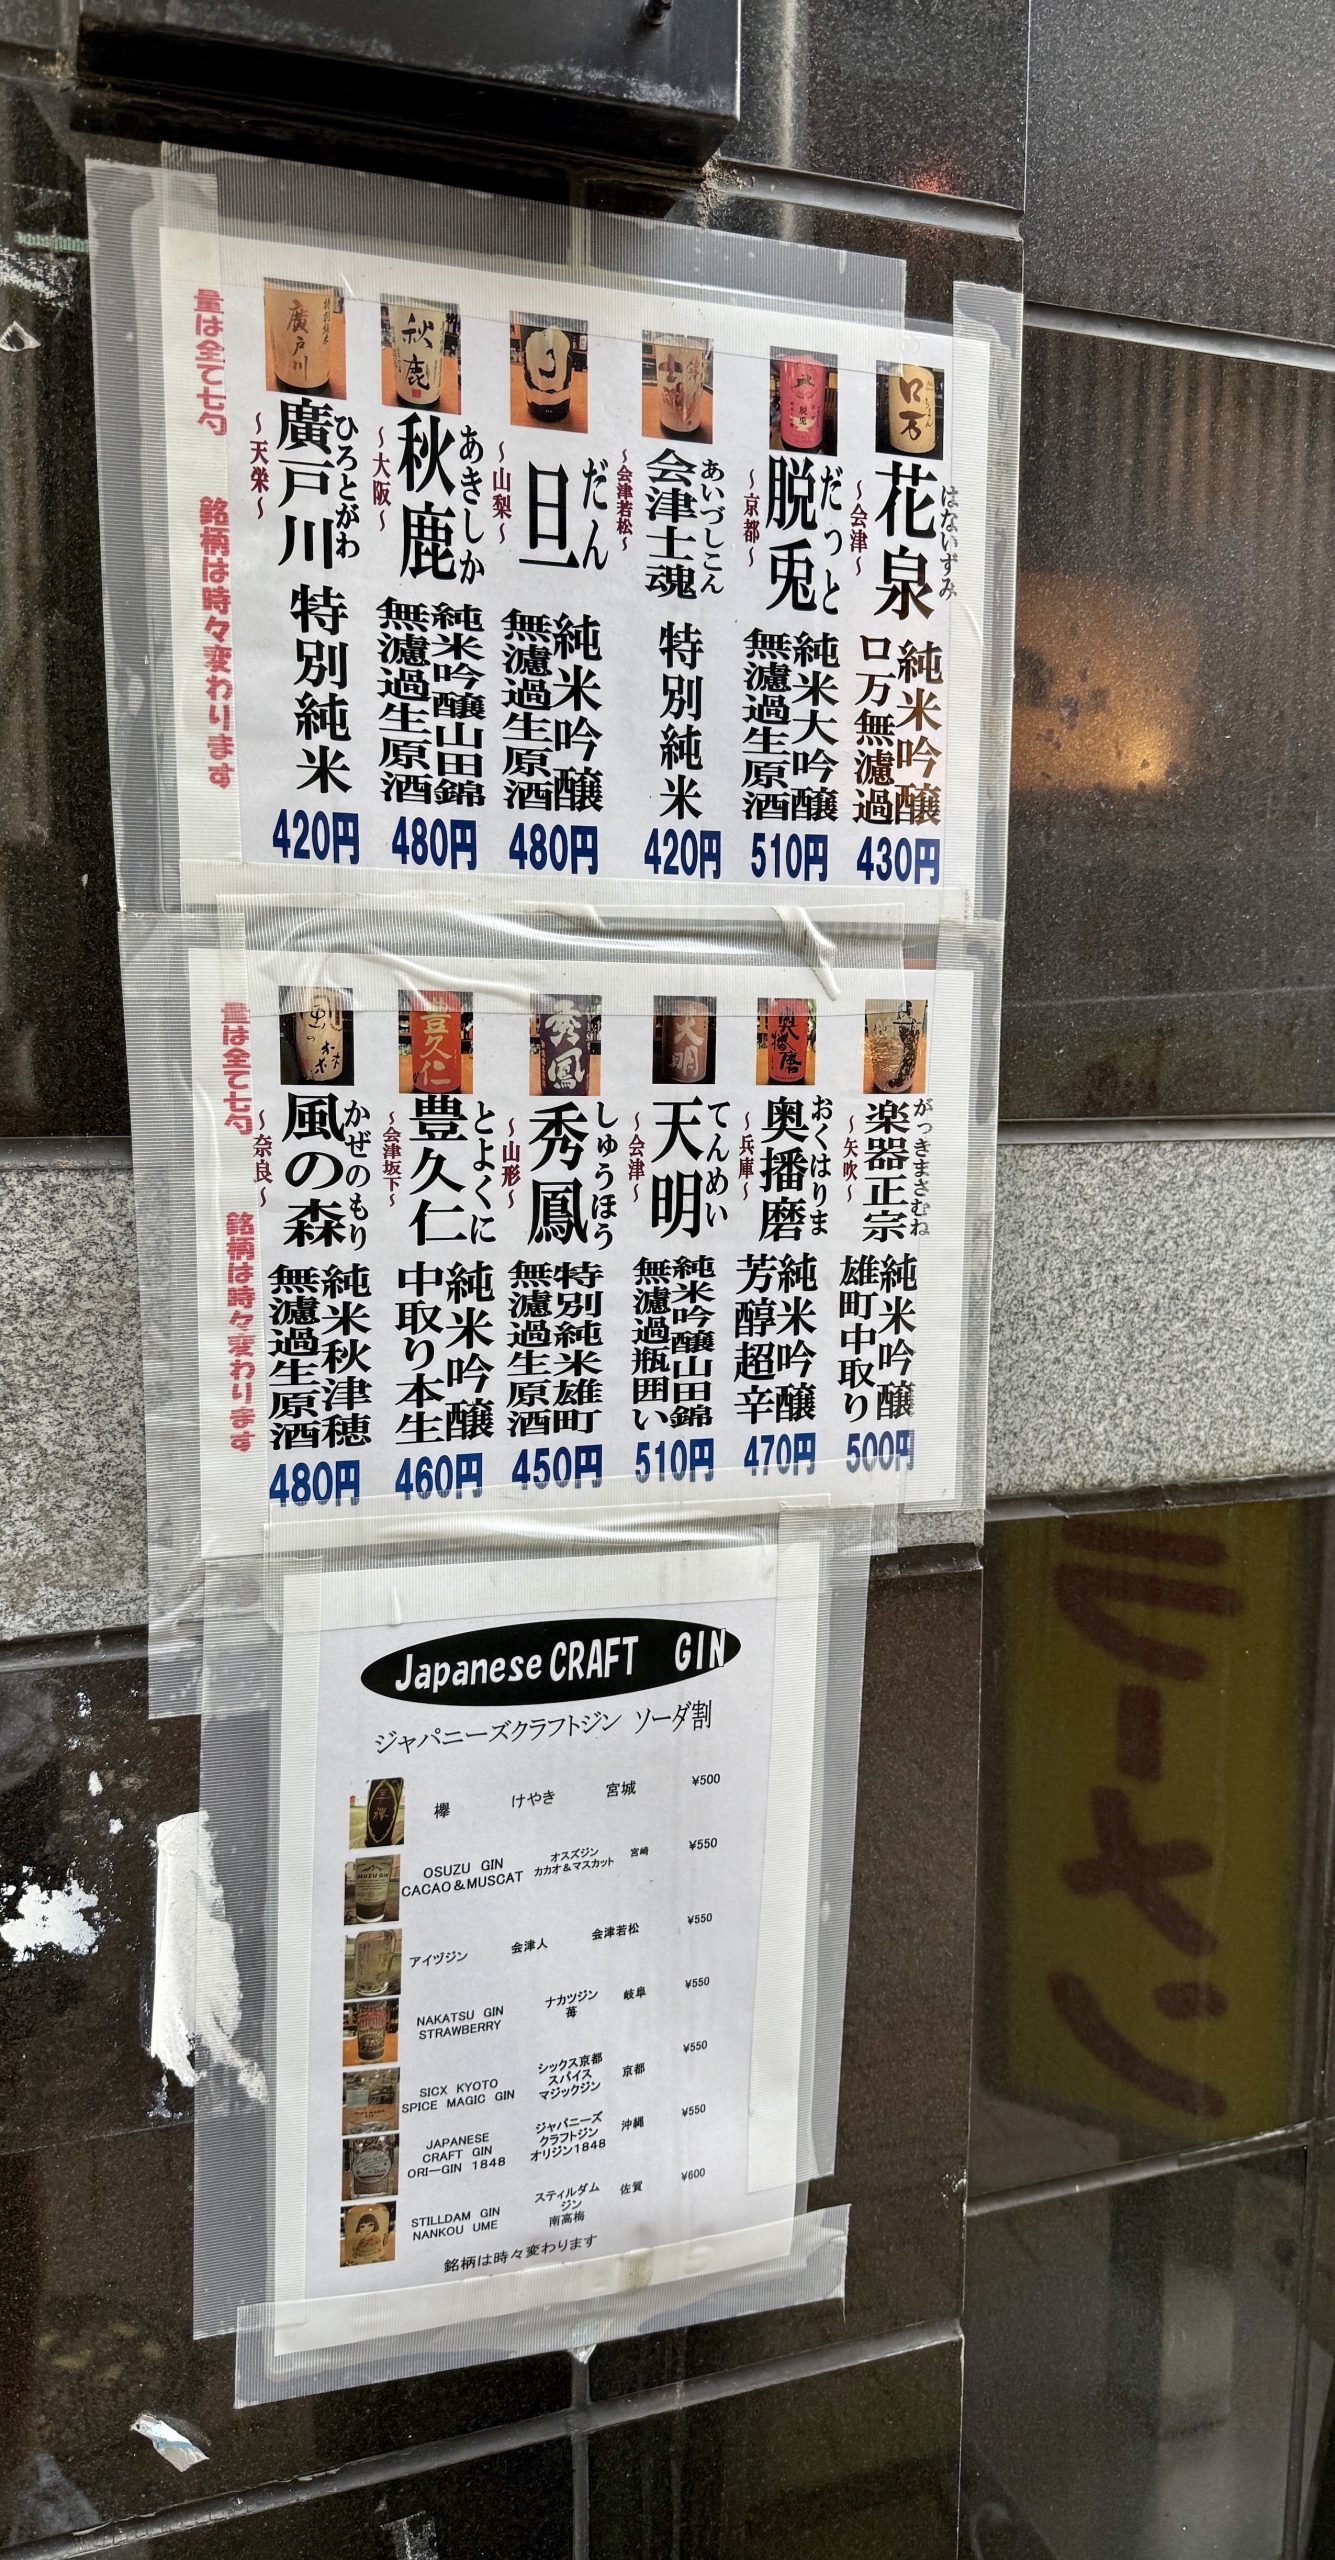 はないずみ
花泉
～会津～
純米吟醸
口万無濾過
430円
だっと
脱兎
～京都～
純米大吟醸
無濾過生原酒
510円
あいづしこん
会津士魂
～会津若松～
特別純米
420円
だん
旦
～山梨～
純米吟醸
無濾過生原酒
480円
あきしか
秋鹿
～大阪～
純米吟醸山田錦
無濾過生原酒
480円
ひろとがわ
廣戸川
～天栄～
特別純米
420円
量は全て七勺 銘柄は時々変わります
がっきまさむね
楽器正宗
～矢吹～
純米吟醸
雄町中取り
500円
おくはりま
奥播磨
～兵庫～
純米吟醸
芳醇超辛
470円
てんめい
天明
～会津～
純米吟醸山田錦
無濾過瓶囲い
510円
しゅうほう
秀鳳
～山形～
特別純米雄町
無濾過生原酒
450円
とよくに
豊久仁
～会津坂下～
純米吟醸
中取り本生
460円
かぜのもり
風の森
～奈良～
純米秋津穂
無濾過生原酒
480円
量は全て七勺 銘柄は時々変わります
Japanese CRAFT GIN
ジャパニーズクラフトジン ソーダ割
欅 けやき 宮城 ¥500
OSUZU GIN
CACAO＆MUSCAT
オスズジン
カカオ＆マスカット
宮崎 ¥550
アイヅジン 会津人 会津若松 ¥550
NAKATSU GIN
STRAWBERRY
ナカツジン
苺
岐阜 ¥550
SICX KYOTO
SPICE MAGIC GIN
シックス京都
スパイス
マジックジン
京都 ¥550
JAPANESE
CRAFT GIN
ORI－GIN 1848
ジャパニーズ
クラフトジン
オリジン1848
沖縄 ¥550
STILLDAM GIN
NANKOU UME
スティルダム
ジン
南高梅
佐賀 ¥600
銘柄は時々変わります
ラーメン